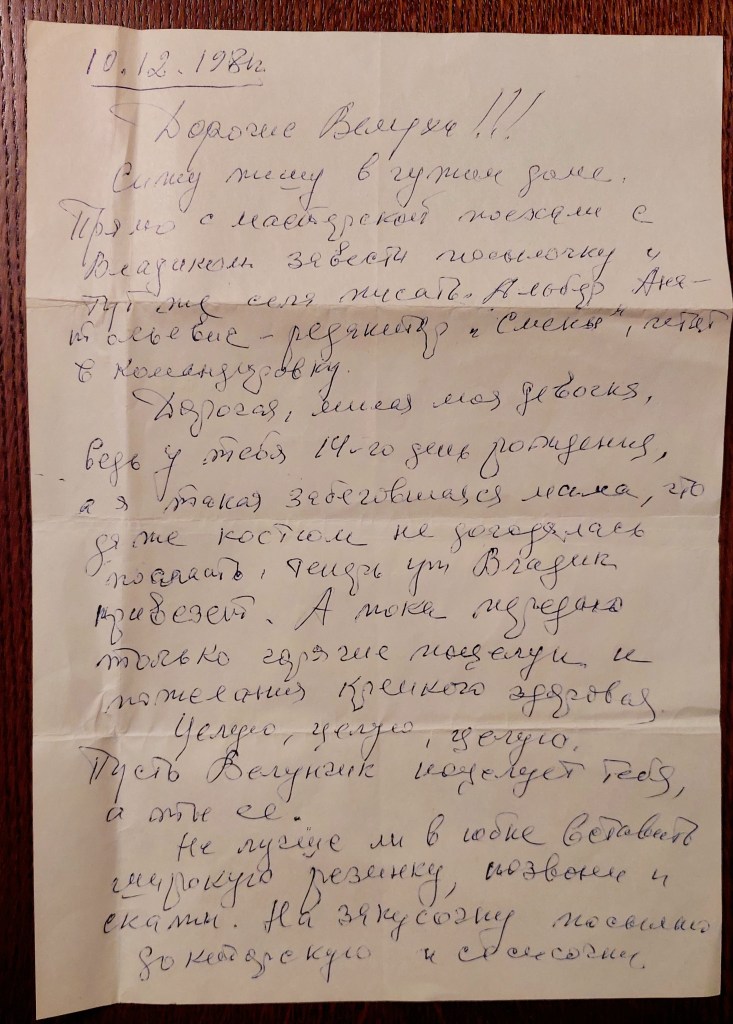 10.12.198 г.
Дорогие !!!
Сижу пишу в чужом доме.
Прямо с мастерской поехали с
Владиком завезти посылочку и
тут же села писать. Альберт Ана-
тольевич - редактор "Смены", летит
в командировку.
Дорогая, милая моя девочка,
ведь у тебя 14-го день рождения,
а я такая забегавшаяся мама, что
даже костюм не догадалась
послать, теперь уж Владик
привезет. А пока передаю
только горячие поцелуи и
пожелания крепкого здоровья.
Целую, целую, целую.
Пусть поцелует тебя,
а ты ее.
Не лучше ли в юбке вставить
широкую резинку, позвони и
скажи. На закусочку посылаю
докторскую и сосисочки.